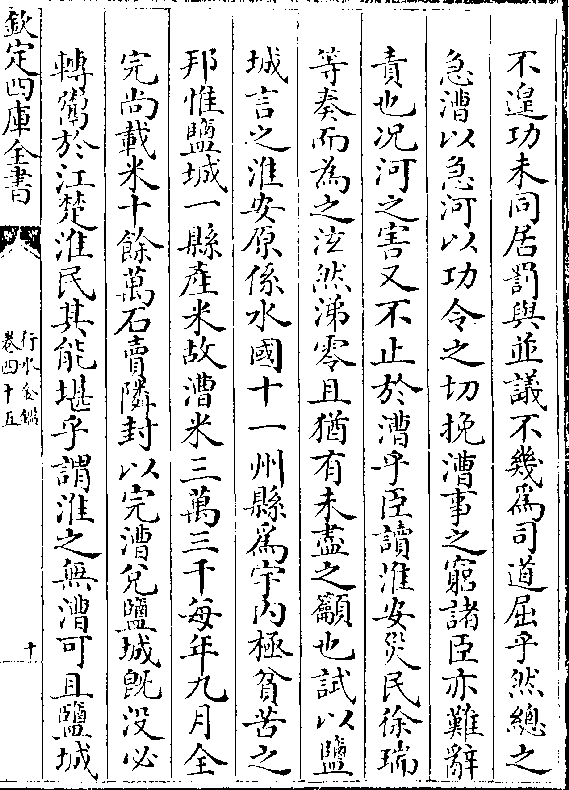 不遑功未同居罰與並議不幾為司道屈乎然總之
急漕以急河以功令之切挽漕事之窮諸臣亦難辭
責也况河之害又不止於漕乎臣讀淮安災民徐瑞
等奏而為之泫然涕零且猶有未盡之籲也試以鹽
城言之淮安原係水國十一州縣為宇内極貧苦之
邦惟鹽城一縣產米故漕米三萬三千每年九月全
完尚載米十餘萬石賣隣封以完漕兌鹽城既没必
轉粥於江楚淮民其能堪乎謂淮之無漕可且鹽城
欽定四庫全書
行水金鑑
卷四十五
十